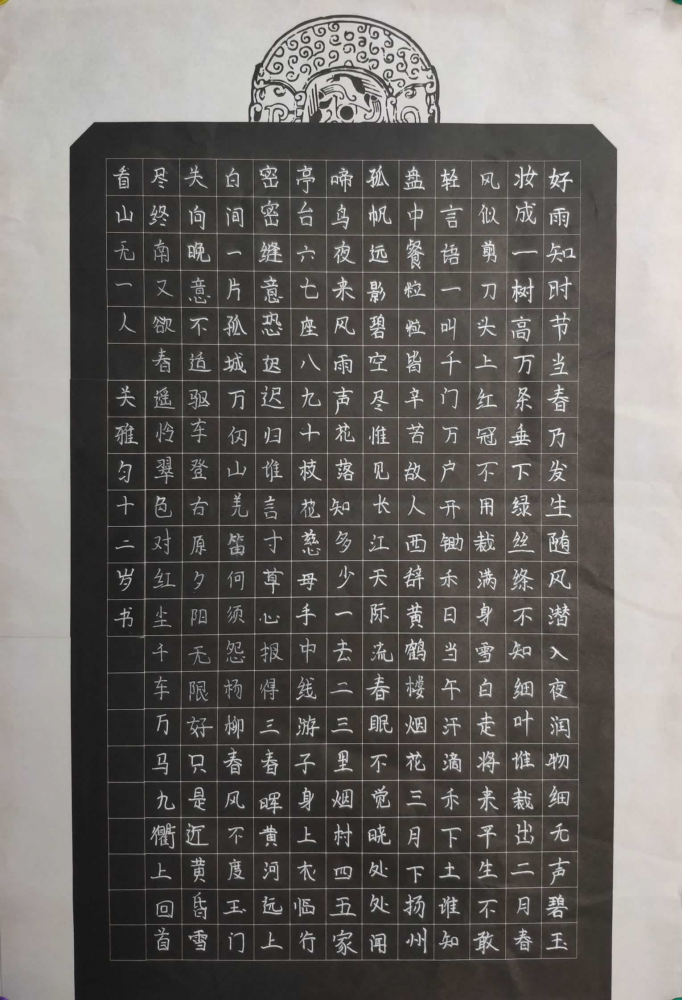 好雨知时节当春乃发生随风潜入夜润物细无声碧玉
妆成一树高万条垂下绿丝绦不知细叶谁裁出二月春
风似剪刀头上红冠不用裁满身雪白走将来平生不敢
轻言语一叫千门万户开锄禾日当午汗滴禾下土谁知
盘中餐粒粒皆辛苦故人西辞黄鹤楼烟花三月下扬州
孤帆远影碧空尽惟见长江天际流春眠不觉晓处处闻
啼鸟夜来风雨声花落知多少一去二三里烟村四五家
亭台六七座八九十枝花慈母手中线游子身上衣临行
密密缝意恐迟迟归谁言寸草心报得三春晖黄河远上
白间一片孤城万仞山羌笛何须怨杨柳春风不度玉门
关向晚意不适驱车登古原夕阳无限好只是近黄昏雪
尽终南又欲春遥怜翠色对红尘千车万马九衢上回首
看山无一人 关雅匀十二岁书